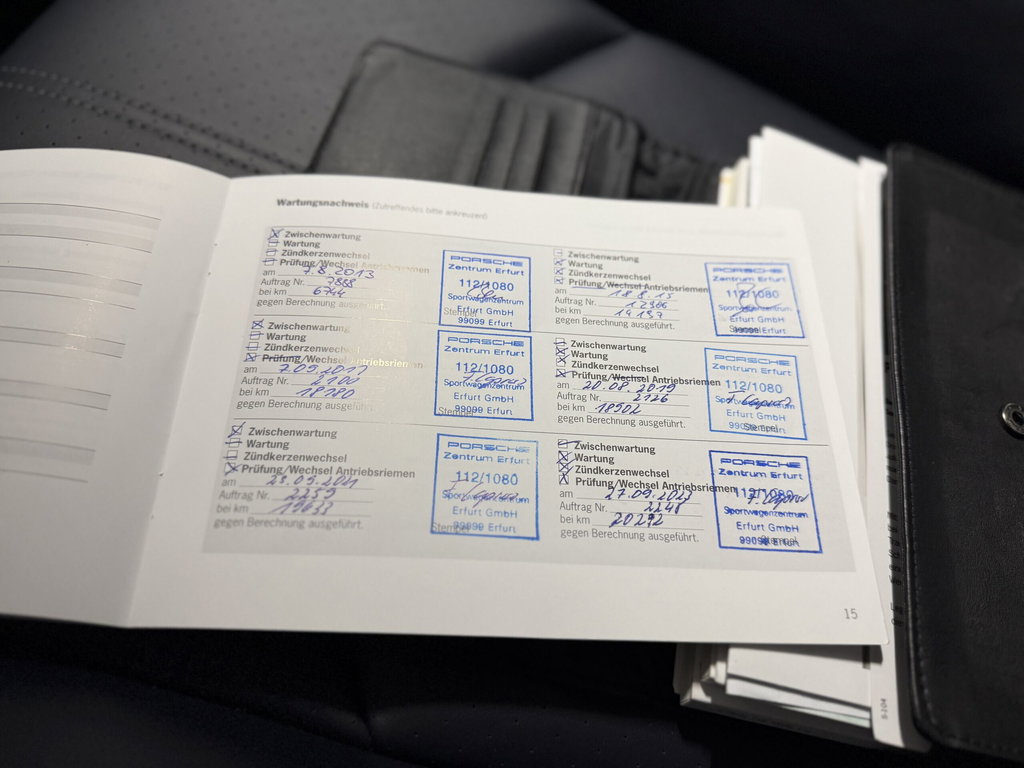 Wartungsnachweis (Zutreffendes bitte ankreuzen)
Zwischenwartung
Wartung
Zündkerzenwechsel
Prüfung/Wechsel Antriebsriemen
am 7.8.2013
Auftrag Nr. 7888
bei km 6744
gegen Berechnung ausgeführt.
PORSCHE
Zentrum Erfurt
112/1080
Sportwagenzentrum
Erfurt GmbH
99099 Erfurt
Stempel
Zwischenwartung
Wartung
Zündkerzenwechsel
Prüfung/Wechsel Antriebsriemen
am 18.8.15
Auftrag Nr. 12966
bei km 14137
gegen Berechnung ausgeführt.
PORSCHE
Zentrum Erfurt
112/1080
Sportwagenzentrum
Erfurt GmbH
99099 Erfurt
Stempel
Zwischenwartung
Wartung
Zündkerzenwechsel
Prüfung/Wechsel Antriebsriemen
am 7.09.2017
Auftrag Nr. 2100
bei km 18180
gegen Berechnung ausgeführt
PORSCHE
Zentrum Erfurt
112/1080
Sportwagenzentrum
Erfurt GmbH
99099 Erfurt
Stempel
Zwischenwartung
Wartung
Zündkerzenwechsel
Prüfung/Wechsel Antriebsriemen
am 20.08.2019
Auftrag Nr. 2126
bei km 18902
gegen Berechnung ausgeführt.
PORSCHE
Zentrum Erfurt
112/1080
Sportwagenzentrum
Erfurt GmbH
99099 Erfurt
Stempel
Zwischenwartung
Wartung
Zündkerzenwechsel
Prüfung/Wechsel Antriebsriemen
am 23.09.2021
Auftrag Nr. 2259
bei km 19633
gegen Berechnung ausgeführt.
PORSCHE
Zentrum Erfurt
112/1080
Sportwagenzentrum
Erfurt GmbH
99099 Erfurt
Stempel
Zwischenwartung
Wartung
Zündkerzenwechsel
Prüfung/Wechsel Antriebsriemen
am 27.09.2023
Auftrag Nr. 2248
bei km 20292
gegen Berechnung ausgeführt.
PORSCHE
Zentrum Erfurt
112/1080
Sportwagenzentrum
Erfurt GmbH
99099 Erfurt
Stempel
15
S-104